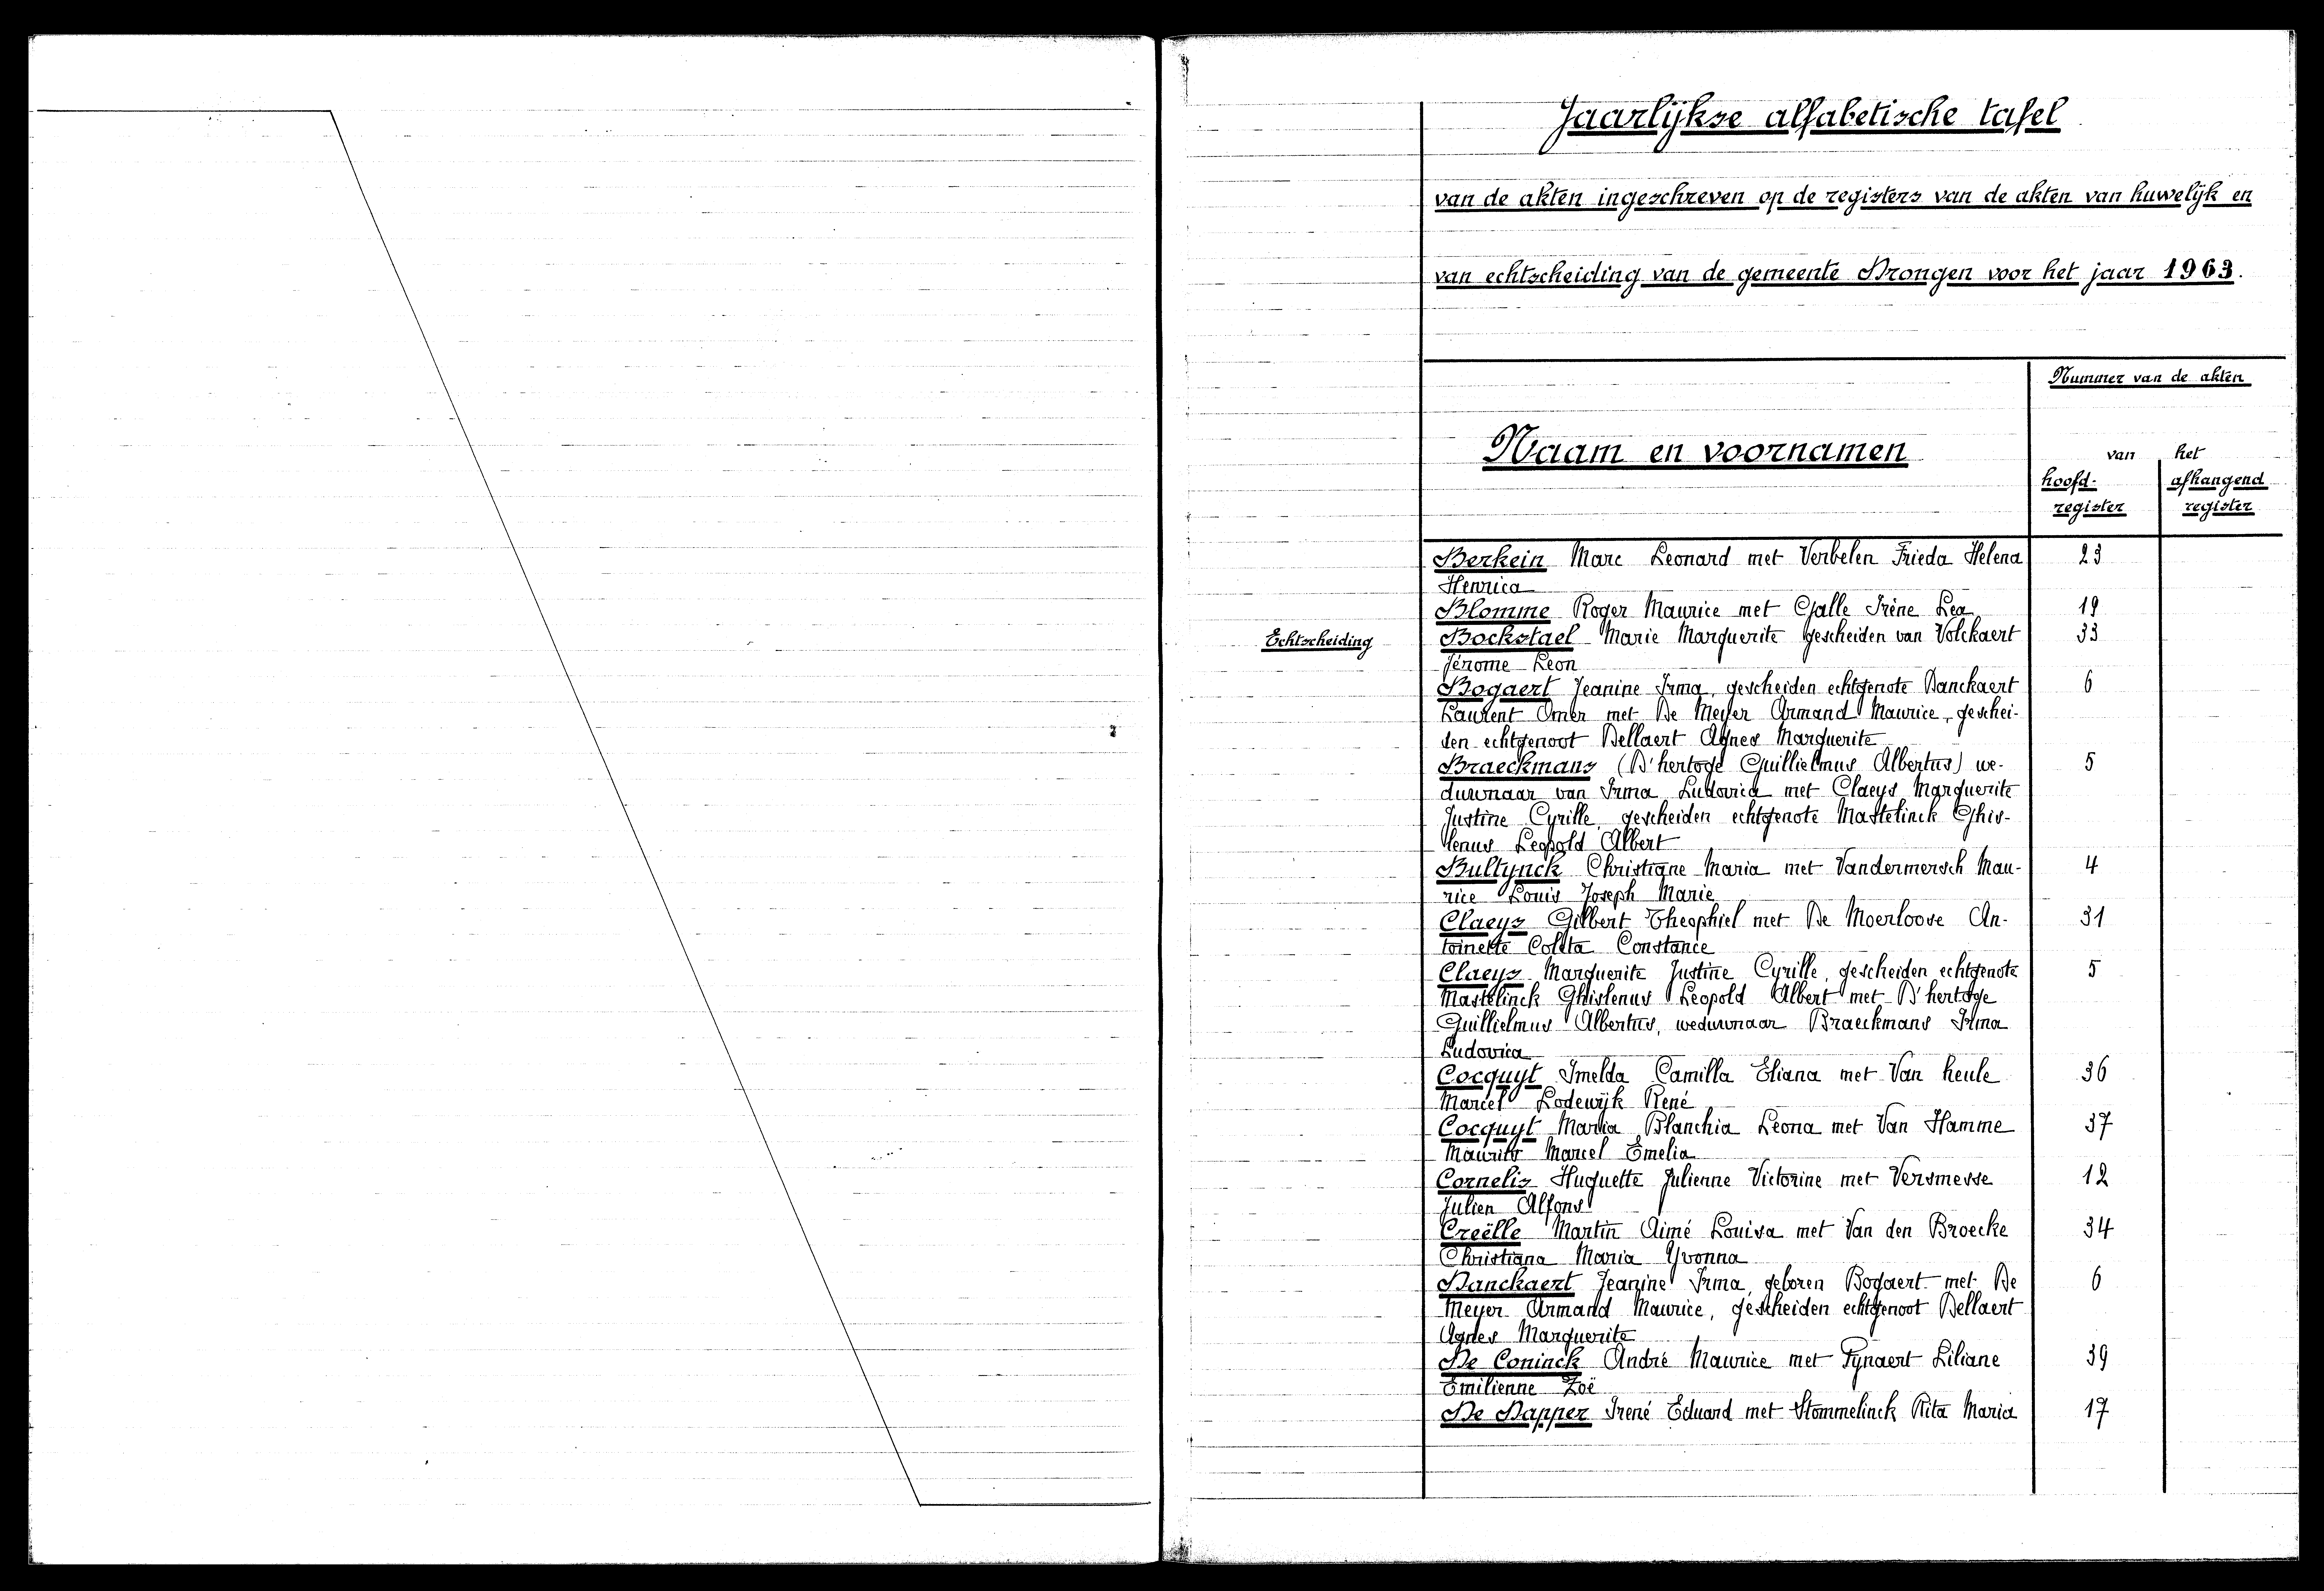 Jaarlijkse alfabetische tafel
van de akten ingeschreven op de registers van de akten van huwelijk en
van echtscheiding van de gemeente Drongen voor het jaar 1963.
Nummer van de akten
Naam en voornamen
van het
hoofd- afhangend
register register
Berkein Marc Leonard met Verbelen Frieda Helena 23
Henrica
Blomme Roger Maurice met Galle Irène Lea 19
Echtscheiding Bockstael Marie Marguerite gescheiden van Volckaert 33
Jérome Leon
Bogaert Jeanine Irma, gescheiden echtgenote Danckaert 6
Laurent Omer met De Meyer Armand Maurice, geschei-
den echtgenoot Dellaert Agnes Marguerite
Braeckmans (D'hertoge Guillielmus Albertus) we- 5
duwnaar van Irma Ludovica met Claeys Marguerite
Justine Cyrille gescheiden echtgenote Mastelinck Ghis-
lenus Leopold Albert
Bultynck Christiane Maria met Vandermersch Mau- 4
rice Louis Joseph Marie
Claeys Gilbert Theophiel met De Moerloose An- 31
toinette Coleta Constance
Claeys Marguerite Justine Cyrille, gescheiden echtgenote 5
Mastelinck Ghislenus Leopold Albert met D'hertoge
Guillielmus Albertus, weduwnaar Braeckmans Irma
Ludovica
Cocquyt Imelda Camilla Eliana met Van heule 36
Marcel Lodewijk René
Cocquyt Maria Blanchia Leona met Van Hamme 37
Maurits Marcel Emelia
Cornelis Huguette Julienne Victorine met Versmesse 12
Julien Alfons
Creëlle Martin Aimé Louisa met Van den Broecke 34
Christiana Maria Yvonna
Danckaert Jeanine Irma, geboren Bogaert met De 6
Meyer Armand Maurice, gescheiden echtgenoot Dellaert
Agnes Marguerite
De Coninck André Maurice met Fynaert Liliane 39
Emilienne Zoë
De Dapper Irené Eduard met Stommelinck Rita Maria 17